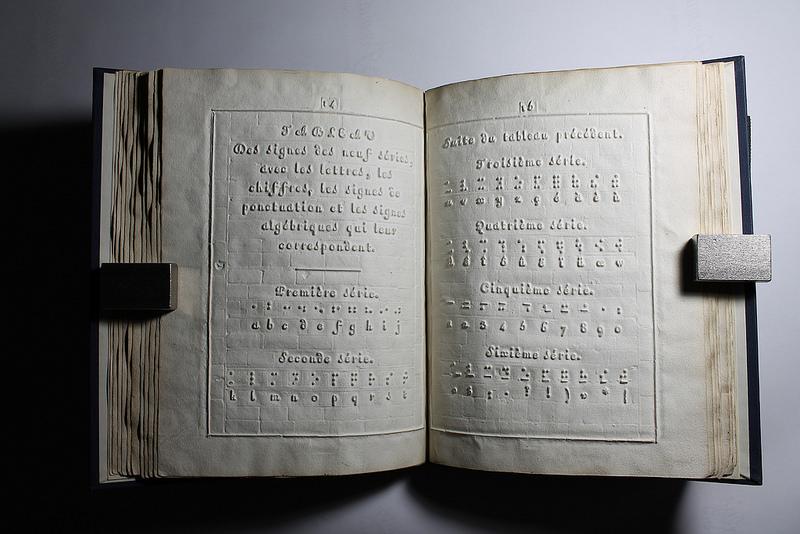 TABLEAU
Des signes des neuf séries,
avec les lettres, les
chiffres, les signes de
ponctuation et les signes
algébriques qui leur
correspondent.
Première série.
a b c d e f g h i j
Seconde série.
k l m n o p q r s t
16
Suite du tableau précédent.
Troisième série.
u v x y z ç é à è ù
Quatrième série.
â ê î ô û ë ï ü œ w
Cinquième série.
Sixième série.